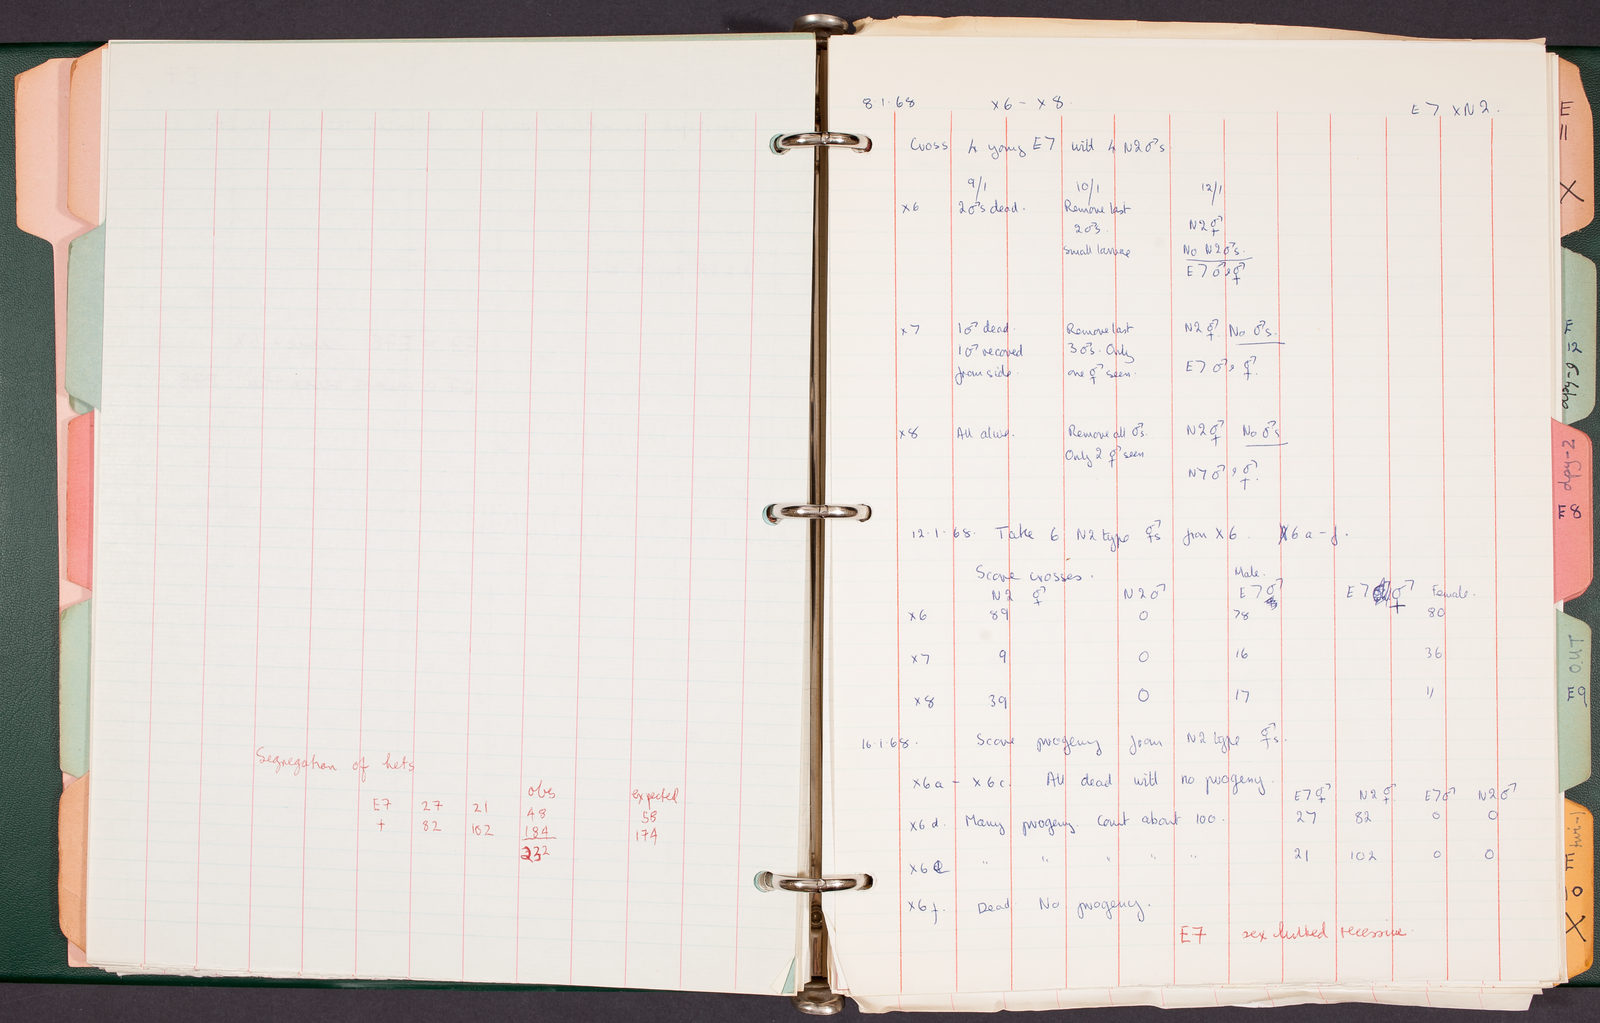 Segregation of hets
obs expected
E7 27 21 48 58
+ 82 102 184 174
232
8.1.68 x6 - x8 E7 x N2.
Cross 4 young E7 with 4 N2 ♂s
9/1 10/1 12/1
x6 2♂s dead. Remove last N2 ⚥
2♂s.
small larvae No N2♂s.
E7 ♂ & ⚥
x7 1♂ dead. Remove last N2 ⚥ No ♂s.
1♂ recoved 3♂s. Only
from side. one ⚥ seen. E7 ♂ & ⚥.
x8 All alive. Remove all ♂s. N2 ⚥ No ♂s
Only 2 ⚥ seen
N7 ♂ & ⚥.
12.1.68. Take 6 N2 type ⚥s from X6. X6a-f.
Score crosses. Male.
N2 ⚥ N2 ♂ E7 ♂ E7 ⚥ Female.
x6 89 0 78 80
x7 9 0 16 36
x8 39 0 17 11
16.1.68. Score progeny from N2 type ⚥s.
x6a - x6c. All dead with no progeny.
E7⚥ N2⚥ E7♂ N2♂
x6d. Many progeny. Count about 100. 27 82 0 0
x6e " " " " " 21 102 0 0
x6f. Dead. No progeny.
E7 sex linked recessive.
E
11
X
E
12
dpy-9
dpy-2
E8
OUT
E9
twi-1
E
10
X